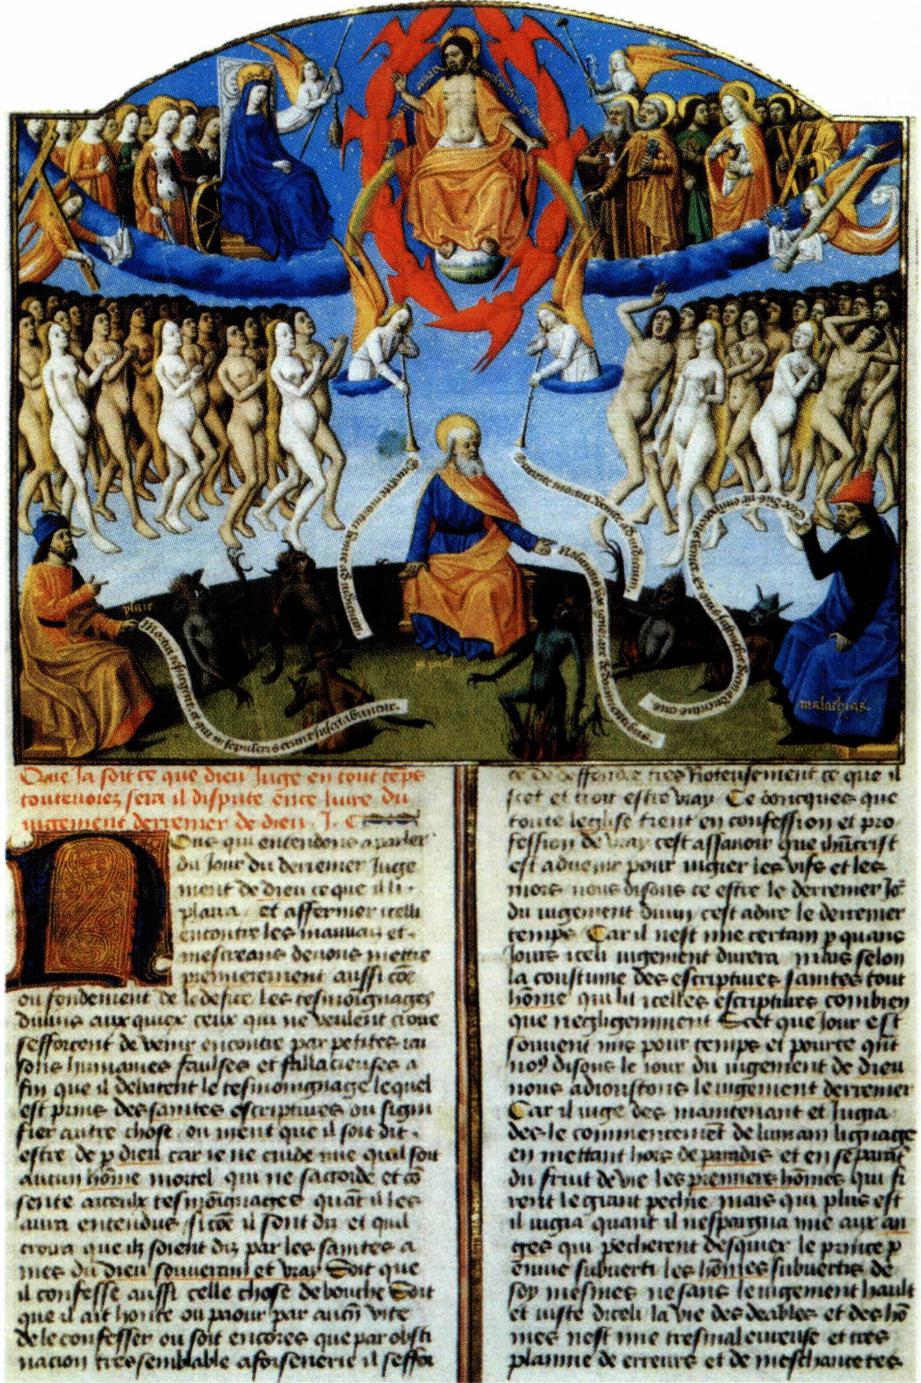 Surgite mortui venite ad iudicium
Surgite mortui venite ad iudicium
malachias
Que ja soit ce que dieu Juge en tout temps
toutevoiez sera il dispute en ce livre du
jugement derremer de dieu. J. C
Nous qui entendons a parler
du Jour du derremer Juge
ment de dieu ce que il li
plaira. et affermer icelli
encontre les mauvais et
mescreans devons mettre
premierement aussi cōe
ou fondement de ledefice les tesmoignages
divins aux quiex ceux qui ne veulent croire
sefforcent de venir encontre par petites rai
sons humaines faulses et fallacieuses a
fin que il debatent le tesmoignage lequel
est prins des saintes escriptures ou signi
fier autre chose. ou ment que il soit dit.
estre de p dieu car ie ne cuide mie quil soit
aucun hōme mortel qui ne saccorde et cō
sente a iceulx tesmoignages quāt il les
aura entendus. si cōe il sont diz et quil
croira que ilz soient diz par les saintes a
mes du dieu souverain et vray Soit que
il confesse aussi celle chose de bouche Soit
que il ait honte ou paour par aucū vice
de le confesser ou soit encores que par obsti
nacion tressemblable a forsenerie il seffor
ce de deffendre tres rioteusement ce que il
scet et croit estre vray Ce doncques que
toute leglise tient en confession et pro
fession de vray cest assavoir que ihucrist
est advenir pour jugier les vifs et les
mors nous disons ce estre le derremer Jo
du jugement divin cest adire le derremer
temps Car il nest mie certain p quans
Jours iceli jugement durera mais selon
la coustume des escriptures saintes tout
hōme qui lit icelles escriptures combien
que negligemment Scet que Jour est
souvent mis pour temps et pource quāt
nos disons le jour du jugement de dieu
nous adioustons le jugement derremer
Car il juge des maintenant et Jugia
des le commencemēt de lumain lignage
en mettant hors de paradis et en separāt
du fruit de vie les premiers hōmes qui fi
rent le grant pechie mais qui plus est
il jugia quant il nespargna mie aux an
ges qui pecherent desquiex le prince p
ēnuie subverti les hōmes subvertis de
soy mesmes ne sans le jugement hault
et juste diceli la vie des deables et des hō
mes nest mie tresmaleureuse et tres
plainne de erreurs et de meschancetes